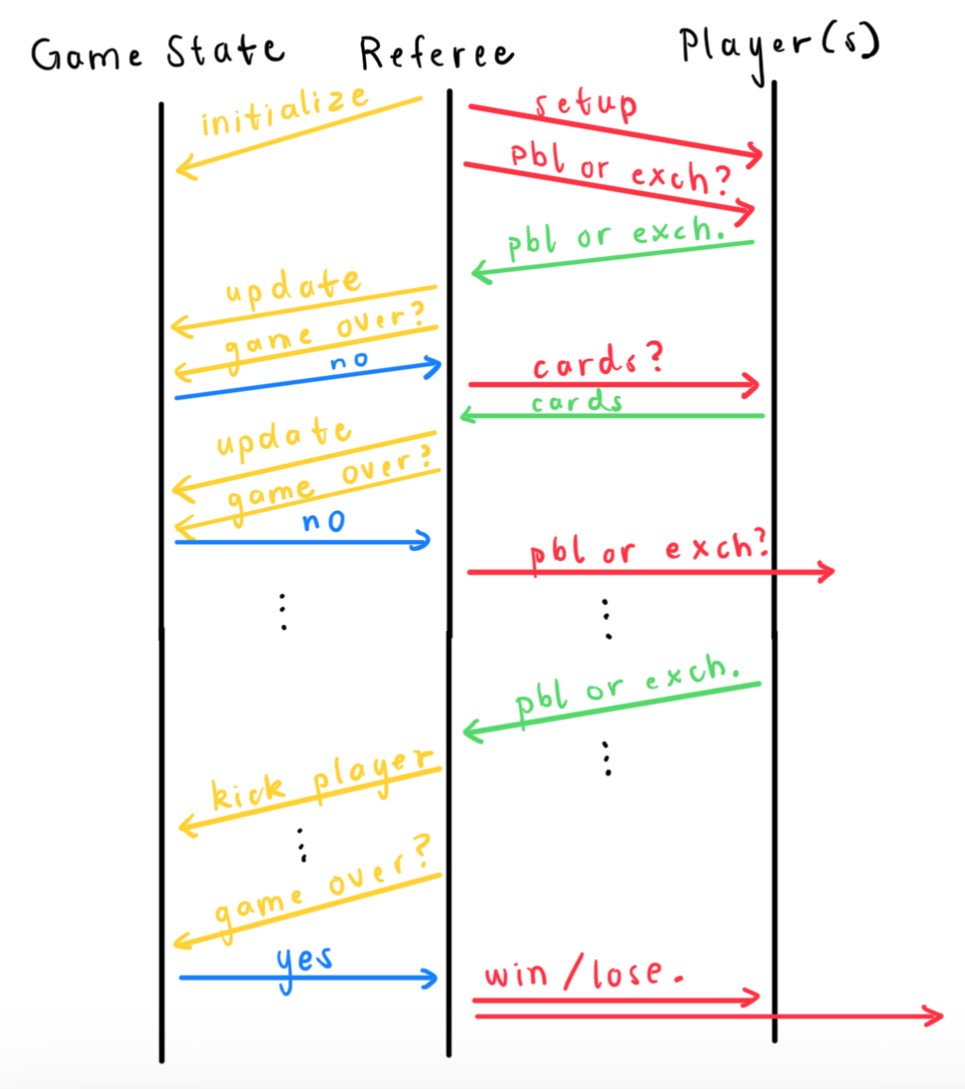 Game State Referee Player(s)
initialize
setup
pbl or exch?
pbl or exch.
update
game over?
no
cards?
cards
update
game over?
no
pbl or exch?
pbl or exch.
kick player
game over?
yes
win/lose.